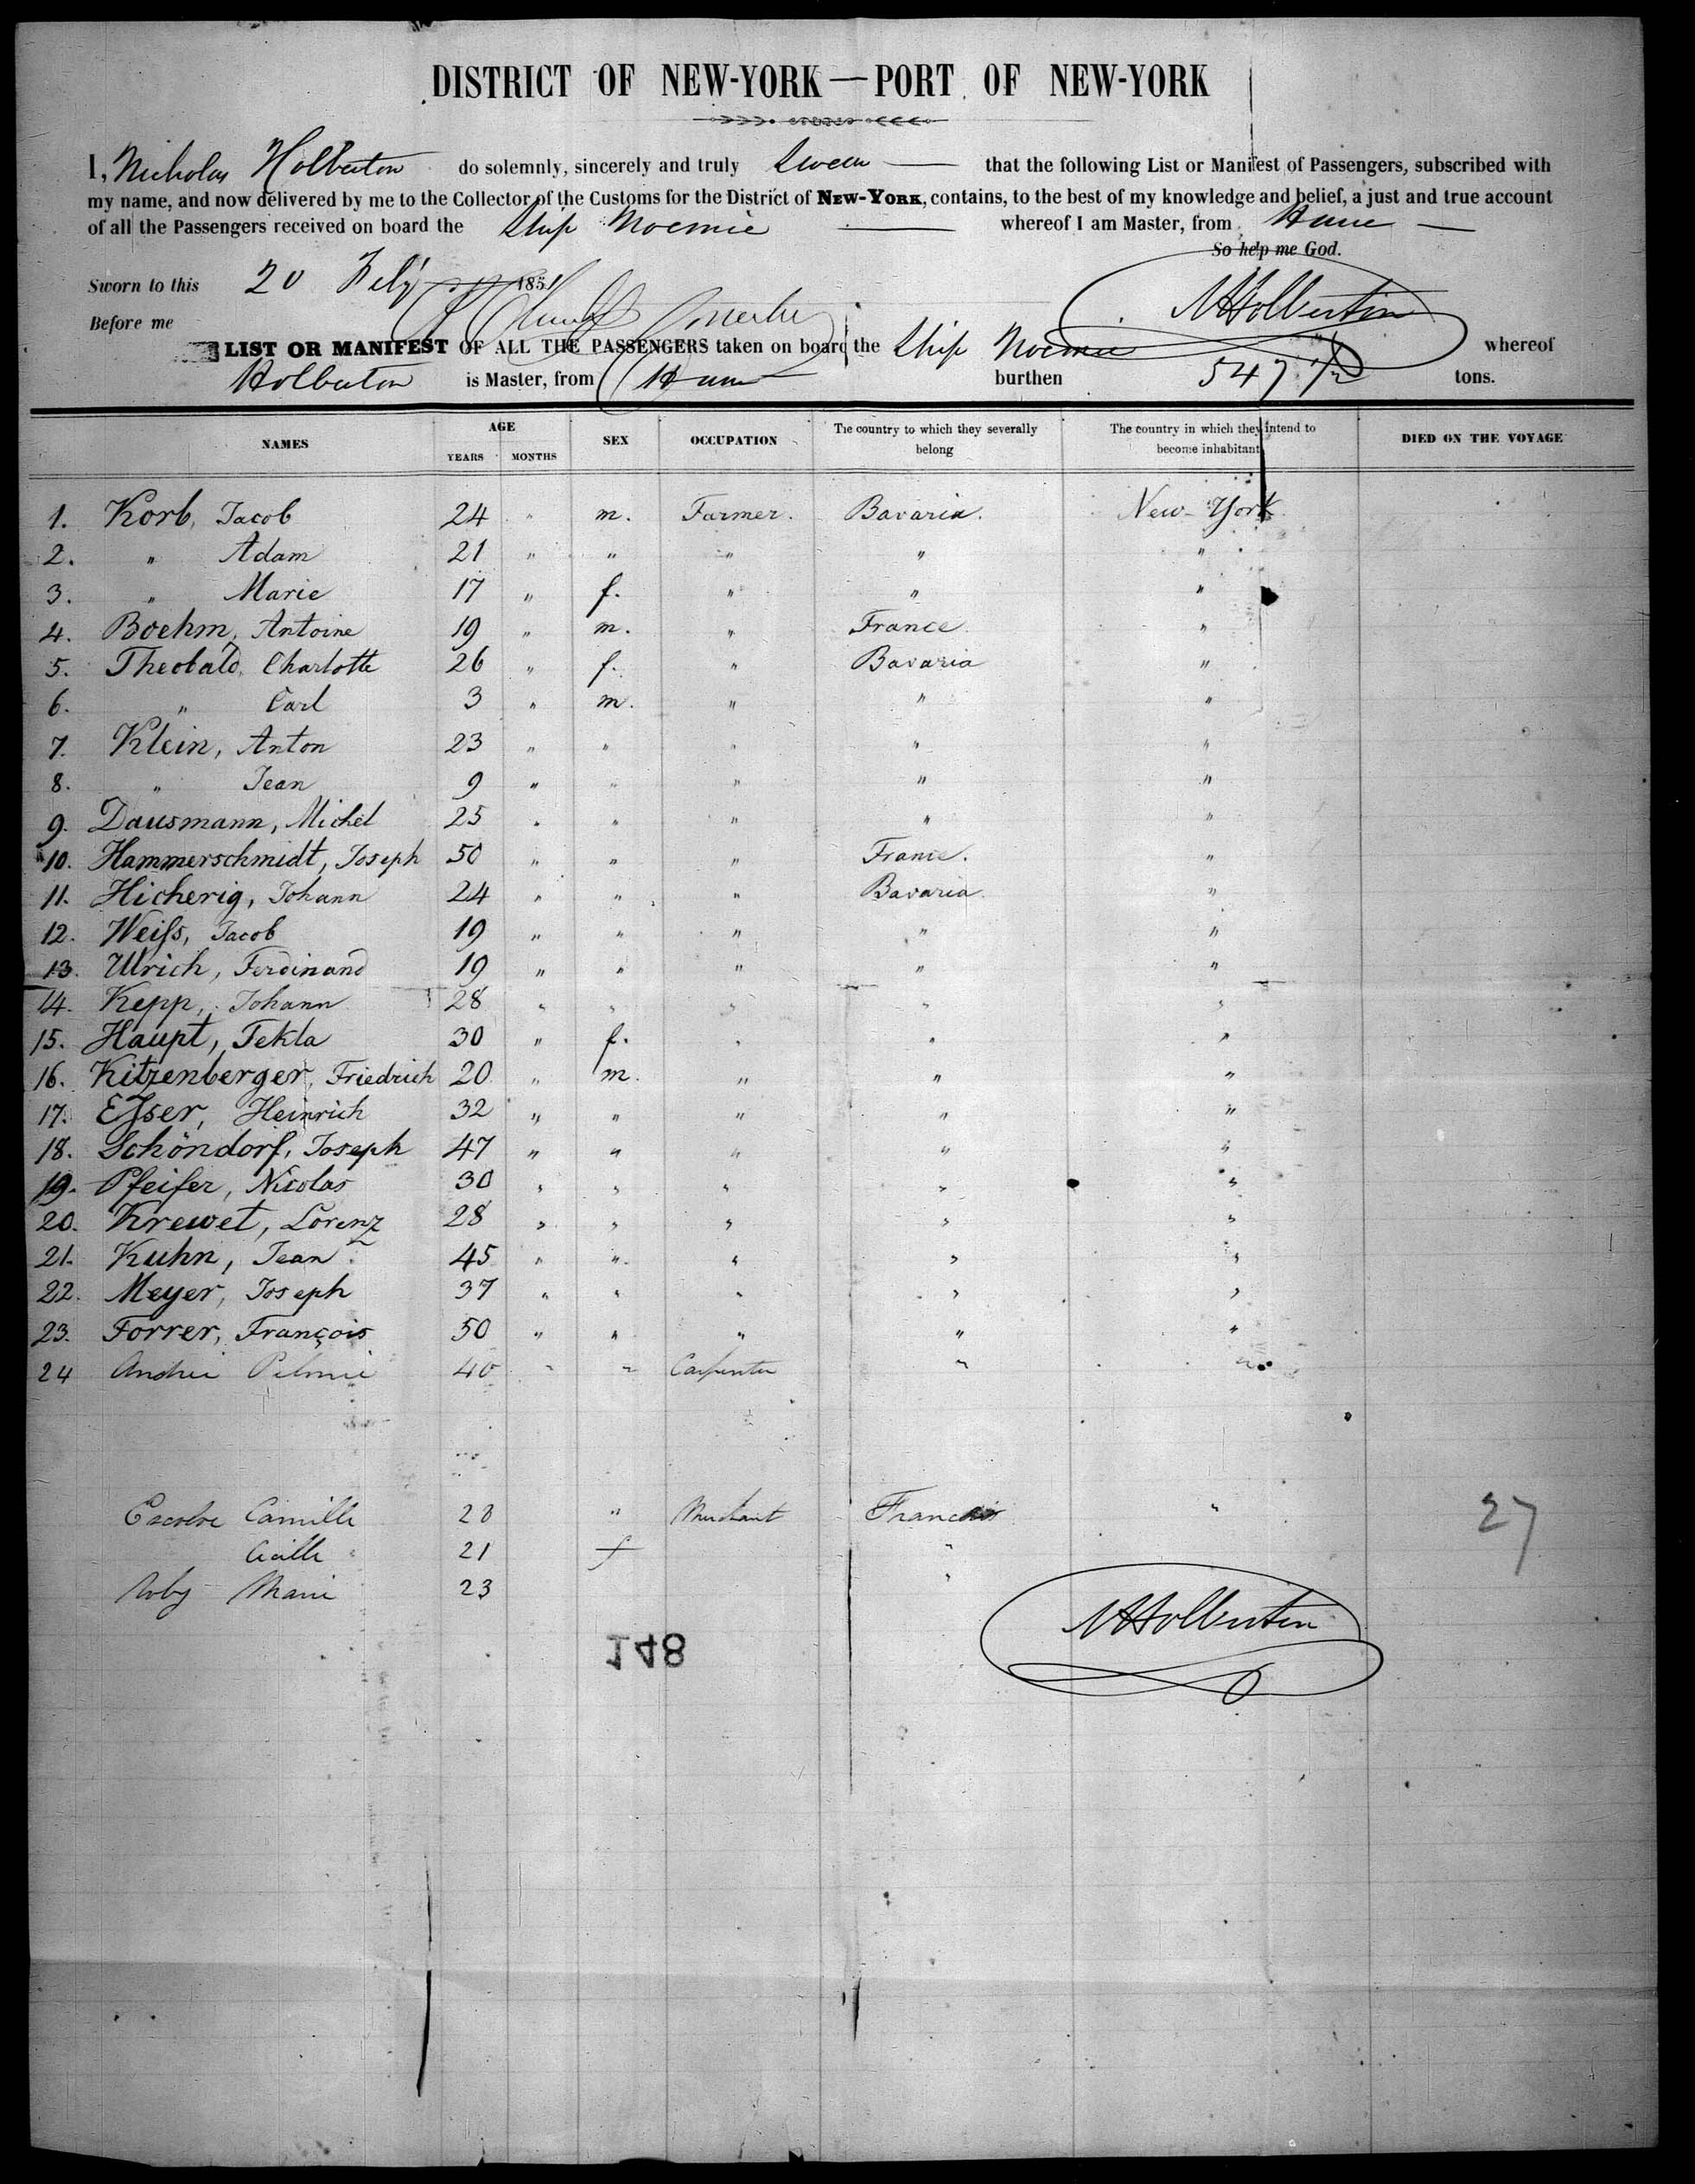 DISTRICT OF NEW-YORK — PORT OF NEW-YORK
I, Nicholas Holberton do solemnly, sincerely and truly Swear — that the following List or Manifest of Passengers, subscribed with
my name, and now delivered by me to the Collector of the Customs for the District of NEW-YORK, contains, to the best of my knowledge and belief, a just and true account
of all the Passengers received on board the Ship Noemie — whereof I am Master, from Havre —
So help me God.
Sworn to this 20 Feby 1851
N Holberton
Before me
LIST OR MANIFEST OF ALL THE PASSENGERS taken on board the Ship Noemie whereof
Holberton is Master, from Havre burthen 547 tons.
NAMES AGE YEARS MONTHS SEX OCCUPATION The country to which they severally belong The country in which they intend to become inhabitants DIED ON THE VOYAGE
1. Korb, Jacob 24 " m. Farmer. Bavaria. New-York
2. " Adam 21 " " " " "
3. " Marie 17 " f. " " "
4. Boehm, Antoine 19 " m. " France. "
5. Theobald, Charlotte 26 " f. " Bavaria "
6. " Carl 3 " m. " " "
7. Klein, Anton 23 " " " " "
8. " Jean 9 " " " " "
9. Dausmann, Michel 25 " " " " "
10. Hammerschmidt, Joseph 50 " " " France. "
11. Hicherig, Johann 24 " " " Bavaria. "
12. Weiſs, Jacob 19 " " " " "
13. Ulrich, Ferdinand 19 " " " " "
14. Kepp, Johann 28 " " " " "
15. Haupt, Tekla 30 " f. " " "
16. Kitzenberger, Friedrich 20 " m. " " "
17. Eſser, Heinrich 32 " " " " "
18. Schöndorf, Joseph 47 " " " " "
19. Pfeifer, Nicolas 30 " " " " "
20. Krewet, Lorenz 28 " " " " "
21. Kuhn, Jean 45 " " " " "
22. Meyer, Joseph 37 " " " " "
23. Forrer, François 50 " " " " "
24 40 " " Carpenter " "
Camille 28 " Merchant France "
27
21 f "
Marie 23 "
N Holberton
148